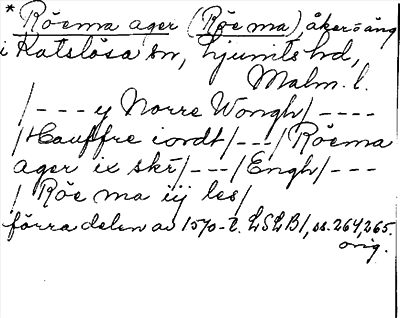 * Röema ager (Röe ma) åker o äng
i Katslösa sn, Ljunits hd,
Malm. l.
/--- y Norre Wongh/----
/Hauffre iordt/---/Röema
ager ix skr/---/Engh/---
/ Röe ma iij les/
förra delen av 1570-t. LSLB1, ss. 264, 265.
orig.